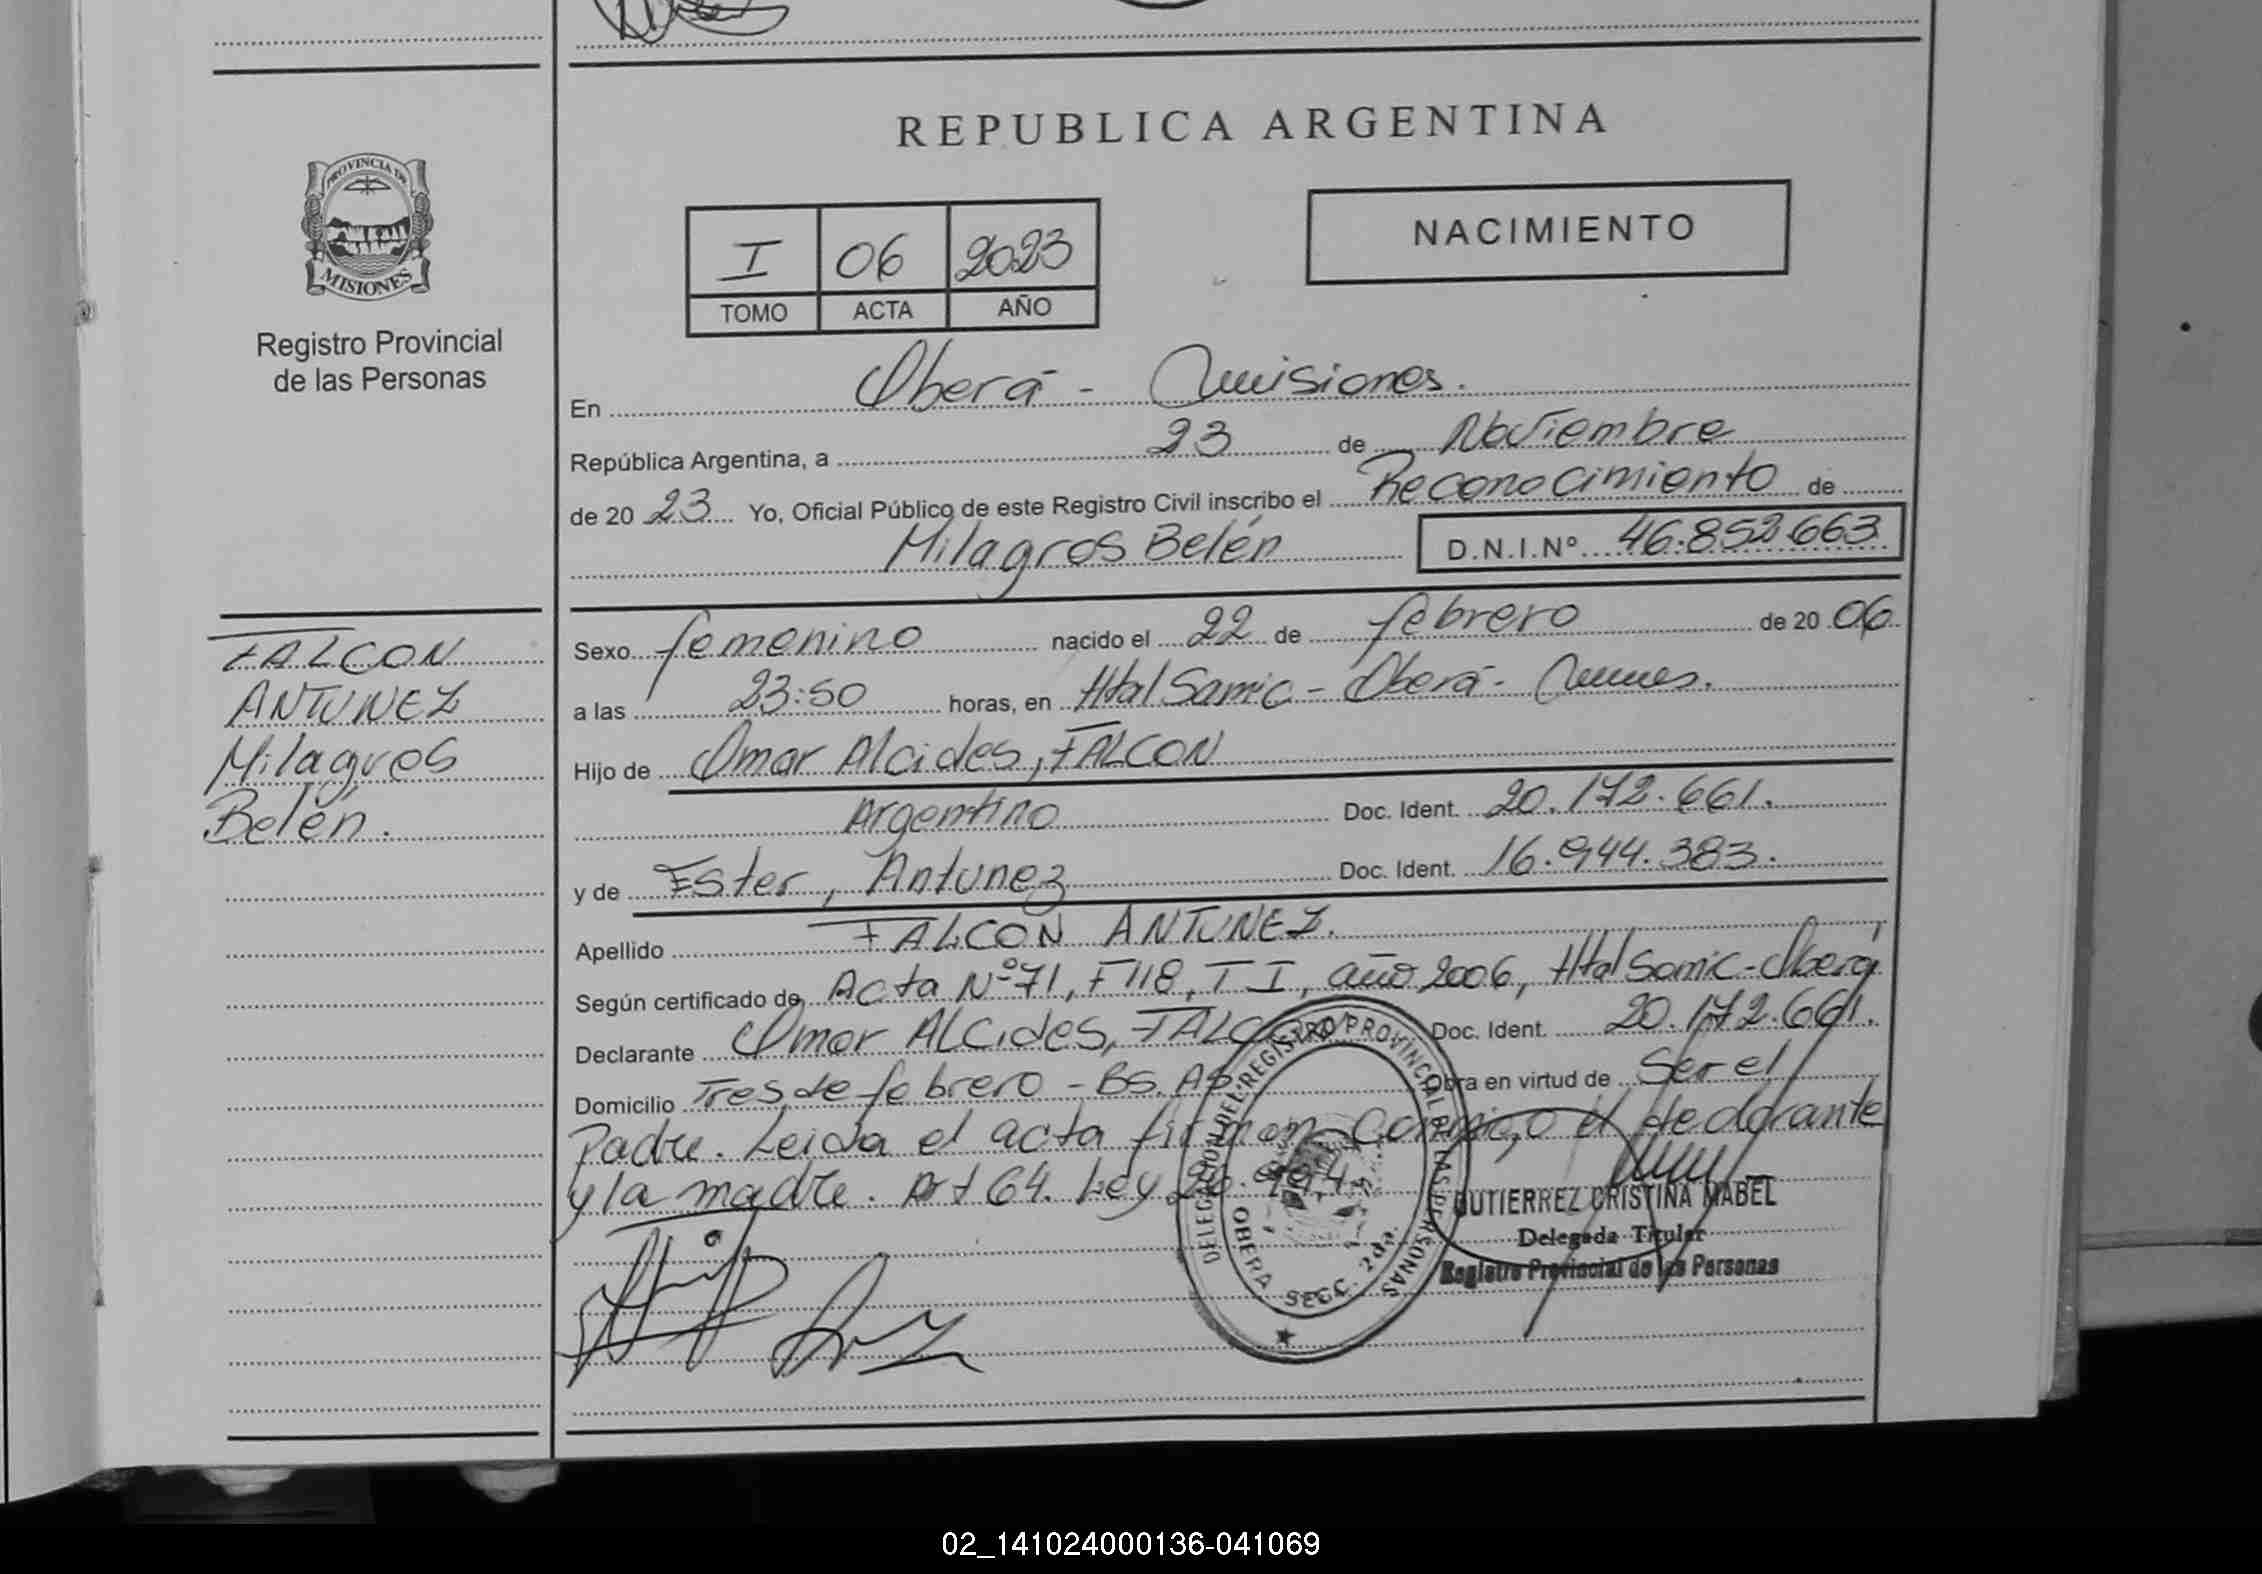 REPUBLICA ARGENTINA
PROVINCIA DE
MISIONES
Registro Provincial
de las Personas
I 06 2023
TOMO ACTA AÑO
NACIMIENTO
En Oberá - Misiones.
República Argentina, a 23 de Noviembre
de 20 23 Yo, Oficial Público de este Registro Civil inscribo el Reconocimiento de
Milagros Belén D.N.I.Nº 46.852.663
FALCON
ANTUNEZ
Milagros
Belén.
Sexo femenino nacido el 22 de febrero de 20 06
a las 23:50 horas, en Htal Samic - Oberá - Mnes.
Hijo de Omar Alcides, FALCON
Argentino Doc. Ident. 20.172.661.
y de Ester, Antunez Doc. Ident. 16.944.383.
Apellido FALCON ANTUNEZ.
Según certificado de Acta Nº 71, F 118, T I, año 2006, Htal Samic - Oberá
Declarante Omar Alcides, FALCON Doc. Ident. 20.172.661.
Domicilio Tres de febrero - BS. AS. Obra en virtud de Ser el
Padre. Leida el acta firman conmigo el declarante
y la madre. Art 64. Ley 26.994.
DELEGACION DEL REGISTRO PROVINCIAL DE LAS PERSONAS
OBERA SECC. 2da.
GUTIERREZ CRISTINA MABEL
Delegada Titular
Registro Provincial de las Personas
02_141024000136-041069